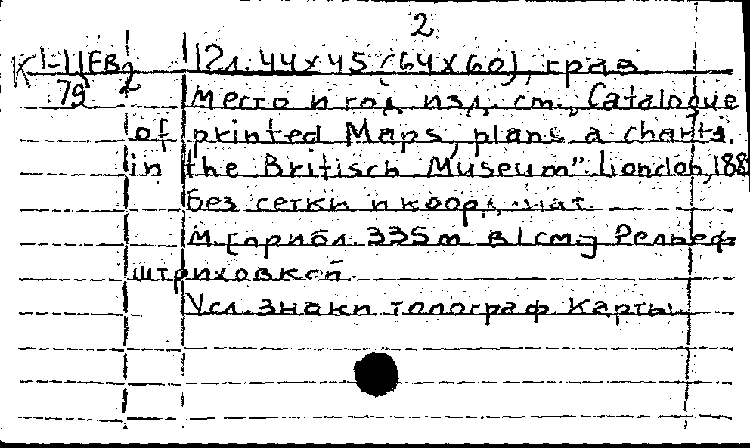 2
К 1-ЦЕВ 2 12л. 44×45 (64×60), грав.
79 Место и год изд. см., Catalogue
of printed Maps, plans a charts.
in the Britisch Museum" London, 188
без сетки и коорд. мат.
М. [прибл. 335m в 1 см.] Рельеф
штриховкой.
Усл. знаки топограф. карты